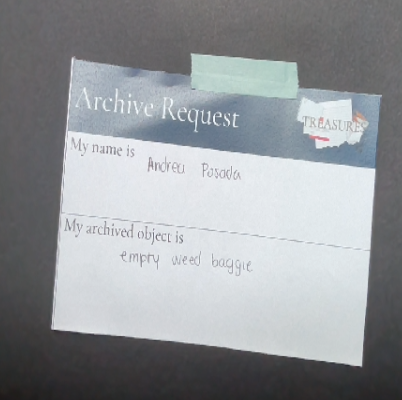 Archive Request
TREASURES
My name is
Andrea Posada
My archived object is
empty weed baggie